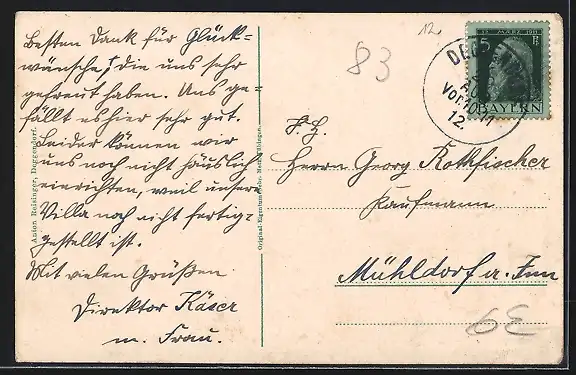 Besten Dank für Glück-
wünsche, die uns sehr
gefreut haben. Uns ge-
fällt es hier sehr gut.
Leider können wir
uns noch nicht häuslich
einrichten, weil unsere
Villa noch nicht fertig-
gestellt ist.
Mit vielen Grüßen
Direktor Käser
m. Frau.
Anton Reisinger, Deggendorf.
Original-Eigentum
12
83
12. MÄRZ 1911
5
Pf
BAYERN
DEG
VOR.10-11
12.
S. H.
Herrn Georg Rothfischer
Kaufmann
Mühldorf a. Inn
6E